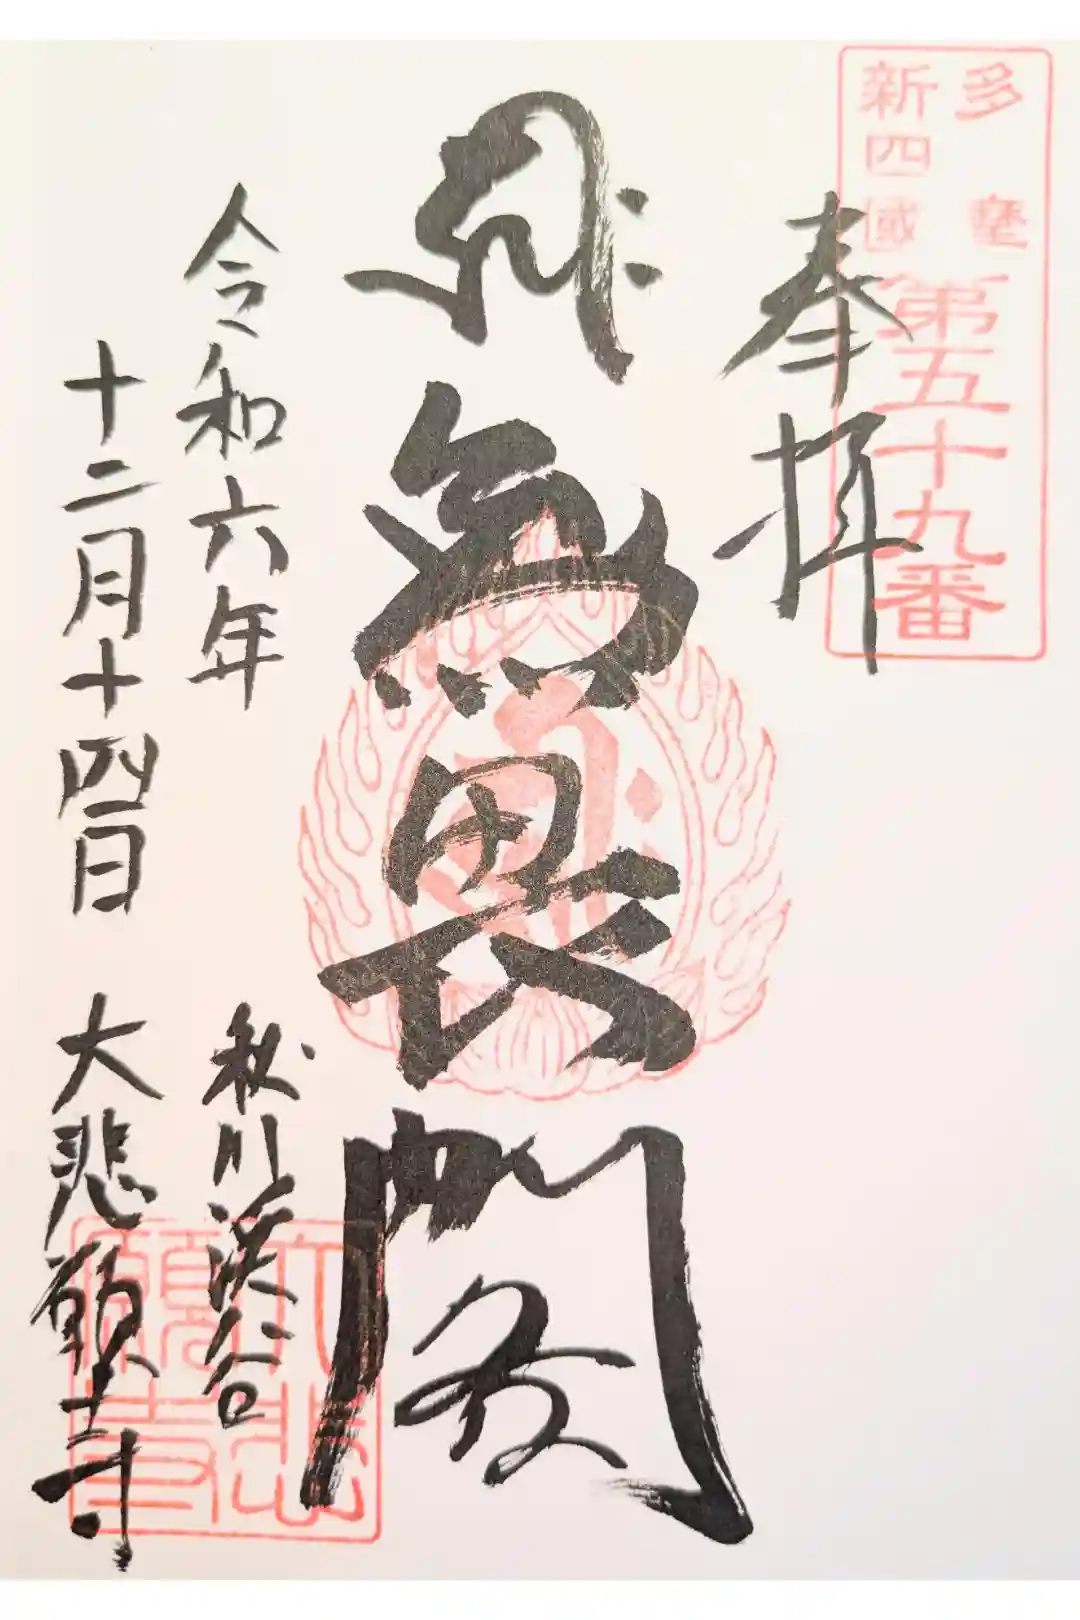 多摩
新四國
第五十九番
奉拝
無畏閣
令和六年
十二月十四日
秋川渓谷
大悲願寺
大悲
願寺